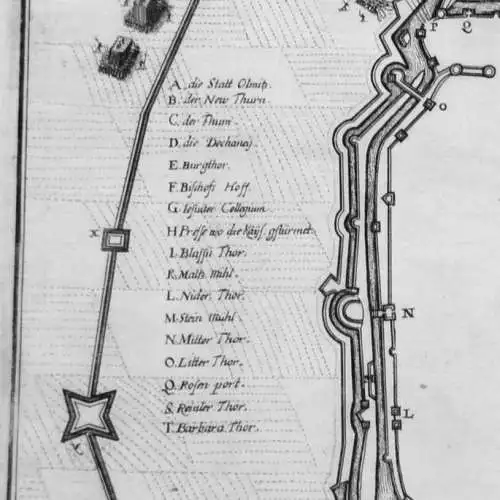 P
Q
O
A. die Statt Olmitz.
B. der New Thurn.
C. der Thum.
D. die Dechaney
E. Burgthor.
F. Bischofs Hoff.
G. Iesuiter Collegium.
H. Presse wo die Kays. gstürmet.
I. Blassii Thor.
K. Malts Mühl.
L. Nider. Thor.
M. Stein Mühl.
N. Mitter Thor.
O. Litter Thor.
Q. Rosen port.
S. Reinler Thor.
T. Barbara Thor.
X
N
L